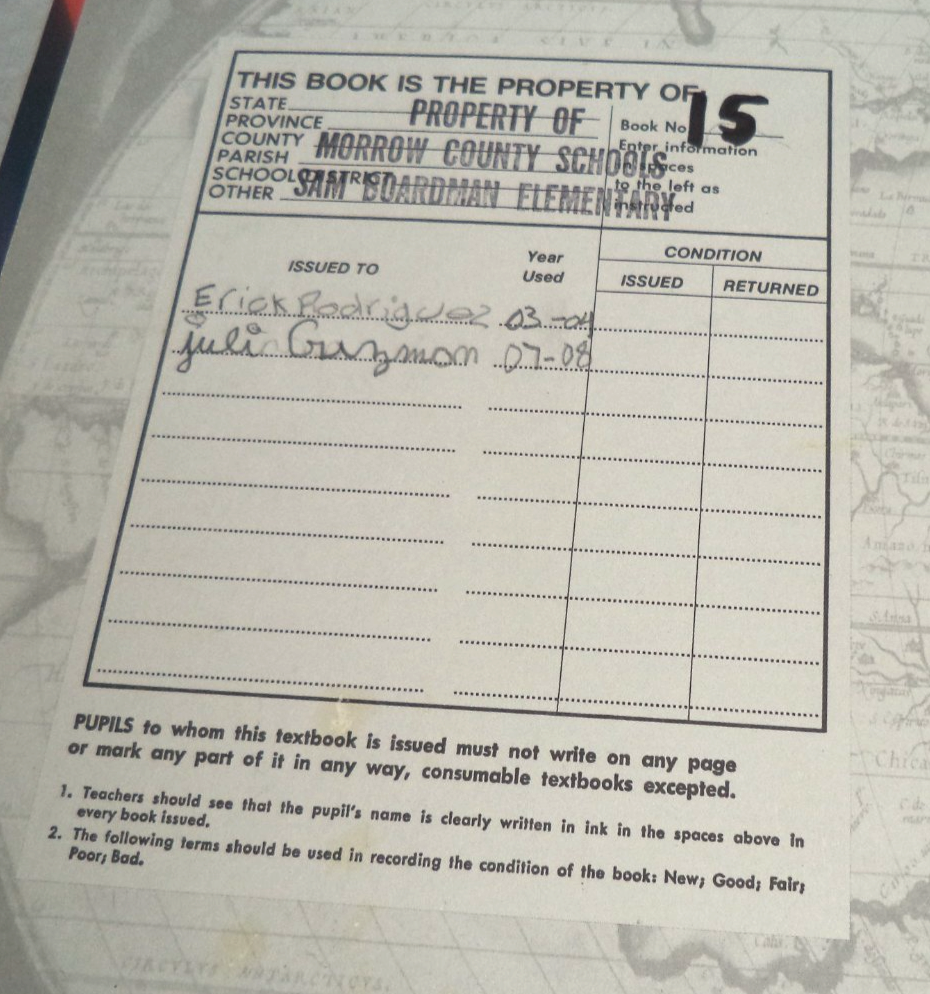 THIS BOOK IS THE PROPERTY OF:
STATE
PROVINCE
COUNTY
PARISH
SCHOOL DISTRICT
OTHER
PROPERTY OF
MORROW COUNTY SCHOOLS
SAM BOARDMAN ELEMENTARY
Book No. 15
Enter information
in spaces
to the left as
instructed
ISSUED TO
Year
Used
CONDITION
ISSUED
RETURNED
Erick Rodriguez 03-04
juli Guzman 07-08
PUPILS to whom this textbook is issued must not write on any page
or mark any part of it in any way, consumable textbooks excepted.
1. Teachers should see that the pupil's name is clearly written in ink in the spaces above in
every book issued.
2. The following terms should be used in recording the condition of the book: New; Good; Fair;
Poor; Bad.
CIRCVLVS ANTARCTICVS.